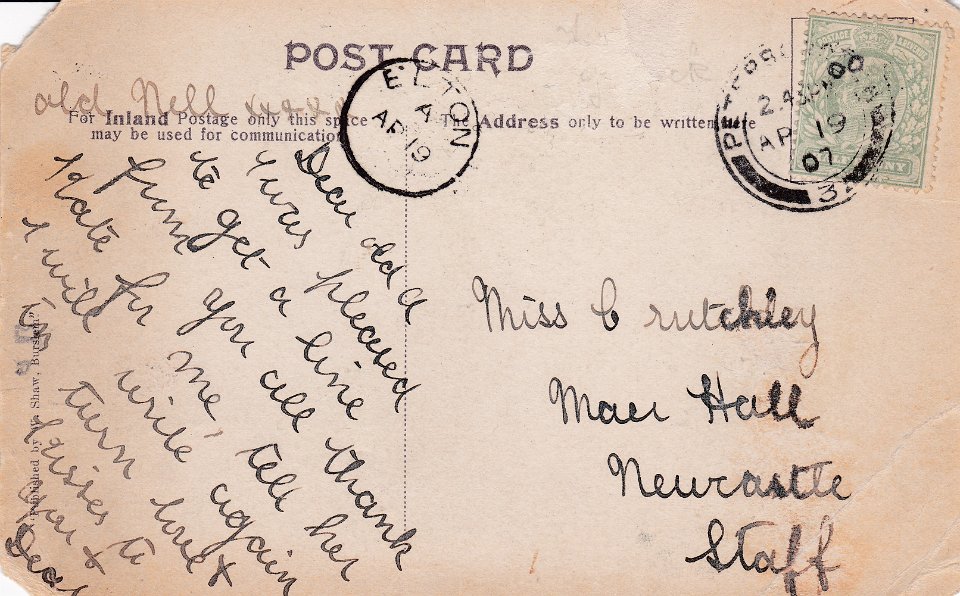 POST CARD
For Inland Postage only this space
may be used for communication
The Address only to be written here
ELTON
A
AP 19
2
AP 19
07
Miss Crutchley
Maer Hall
Newcastle
Staff
Dear old A
I was pleased
to get a line thank
from you all tell her
Kate for me
I will write again
in turn love &
kisses to
you &
Dear
old Nell xxxx
Published by Shaw, Burslem"